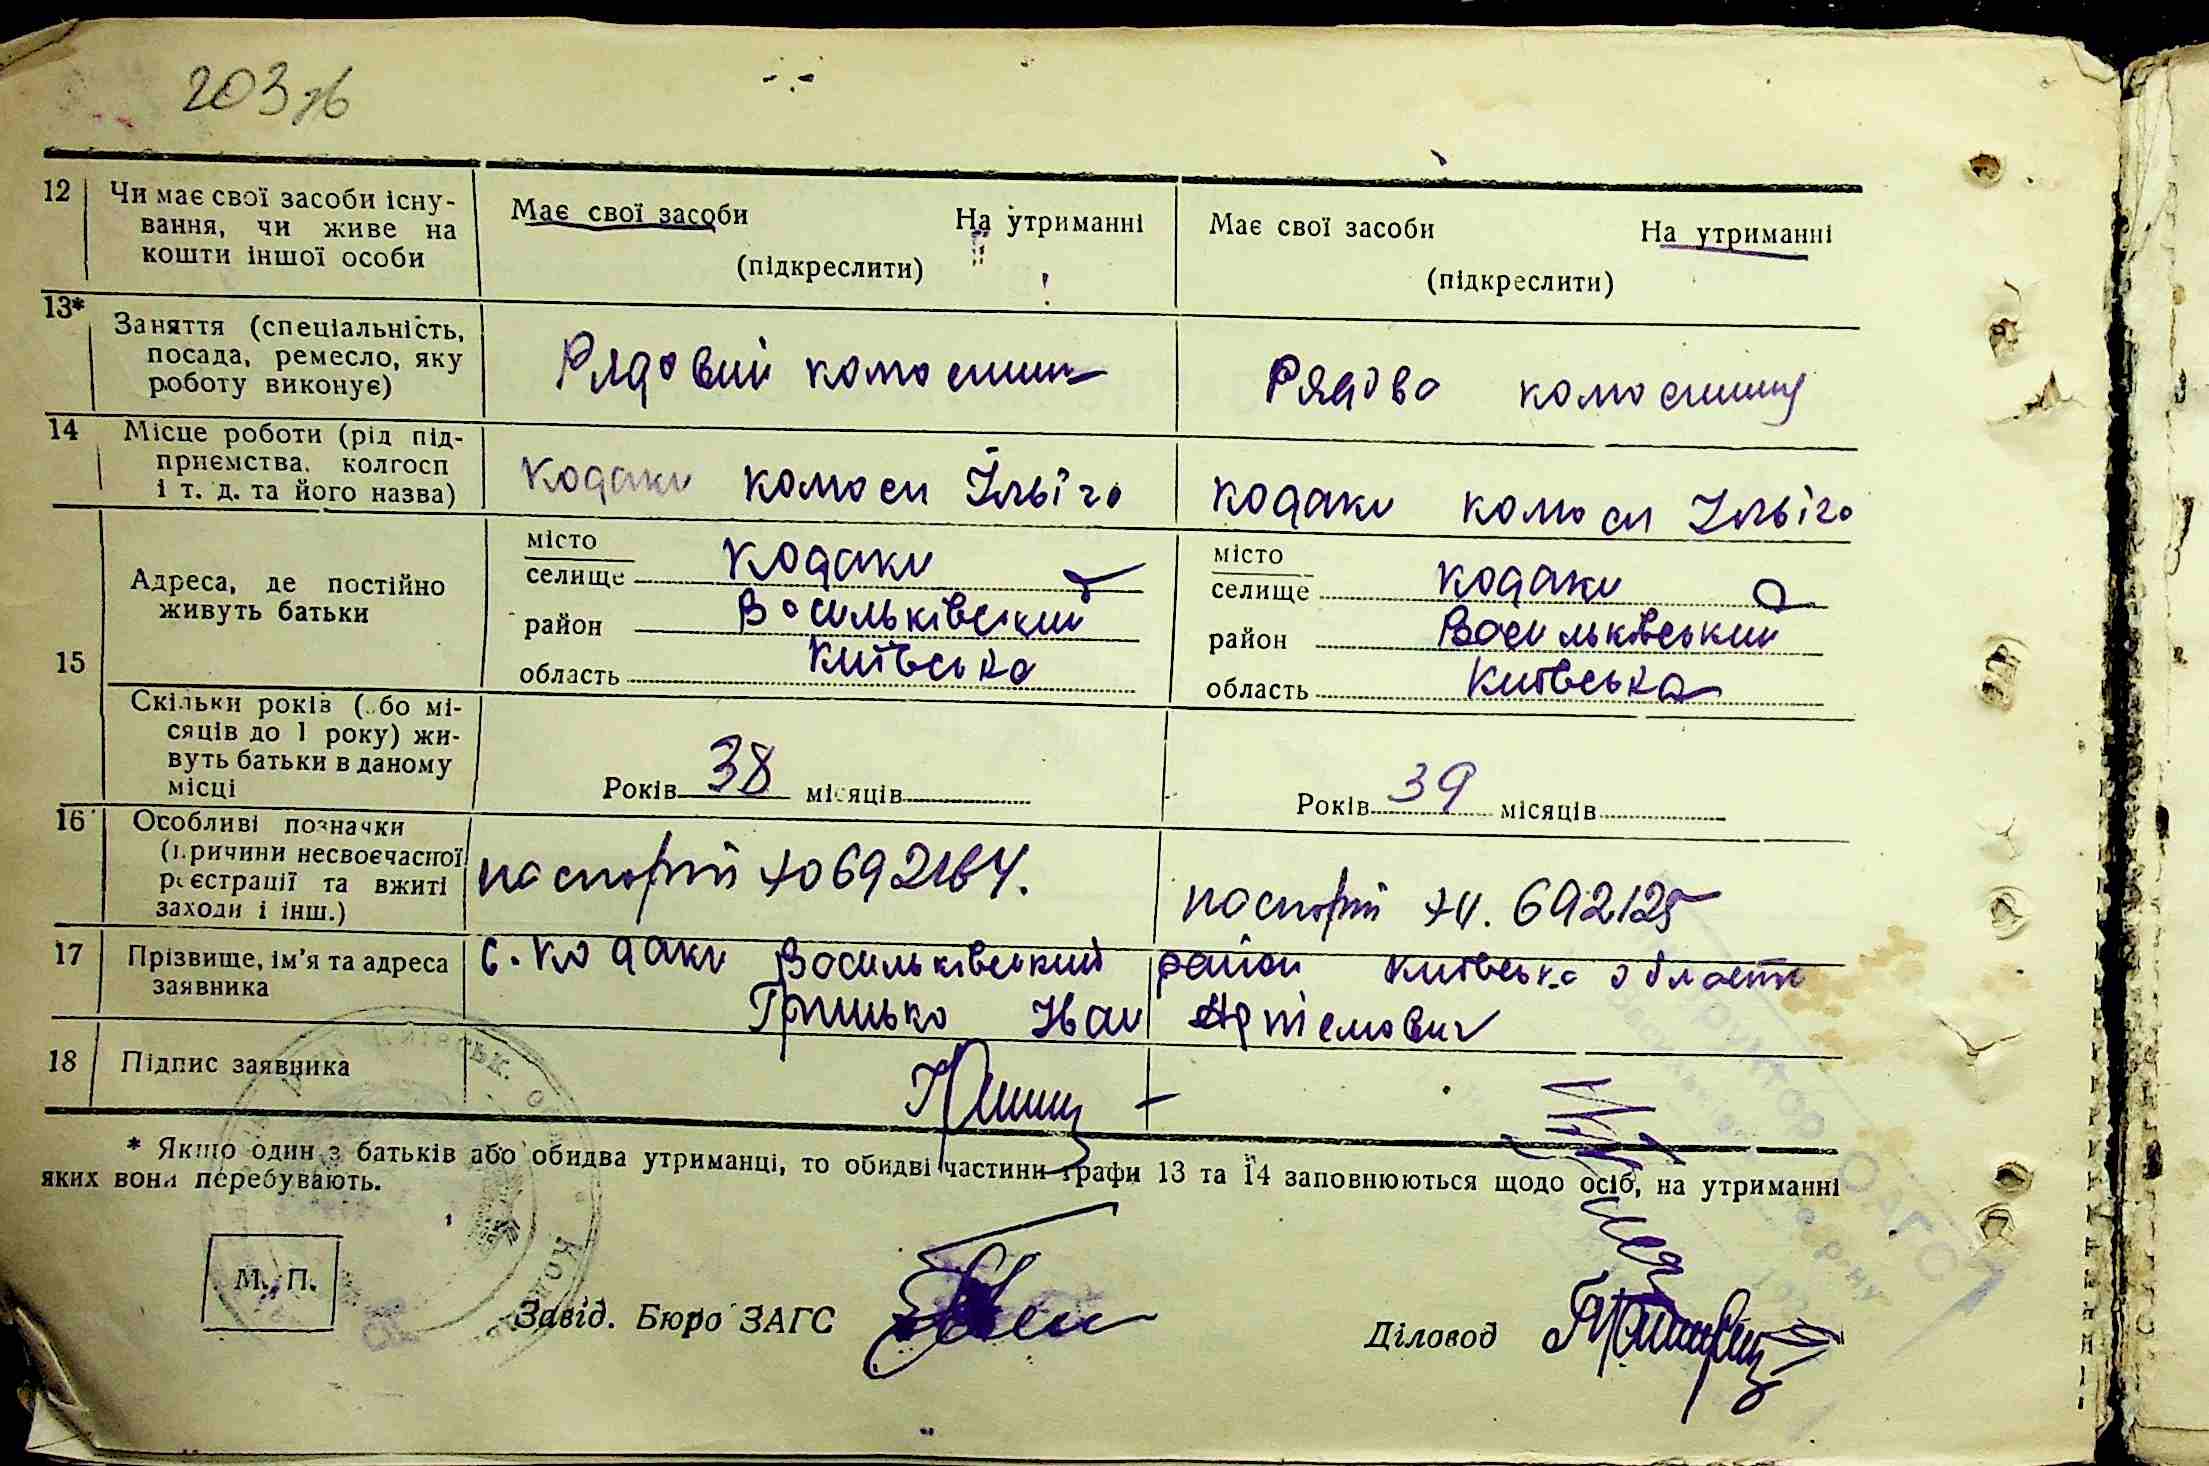 203 зв
12 Чи має свої засоби існу-
вання, чи живе на
кошти іншої особи
Має свої засоби На утриманні
(підкреслити)
Має свої засоби На утриманні
(підкреслити)
13* Заняття (спеціальність,
посада, ремесло, яку
роботу виконує)
Рядовий
Рядова
14 Місце роботи (рід під-
приємства, колгосп
і т. д. та його назва)
Кодаки Ілліча
Кодаки Ілліча
15 Адреса, де постійно
живуть батьки
місто
селище Кодаки
район Васильківський
область Київська
місто
селище Кодаки
район Васильківський
область Київська
Скільки років (або мі-
сяців до 1 року) жи-
вуть батьки в даному
місці
Років 38 місяців
Років 39 місяців
16 Особливі позначки
(причини несвоєчасної
реєстрації та вжиті
заходи і інш.)
паспорт 692164.
паспорт 692125
17 Прізвище, ім'я та адреса
заявника
с. Кодаки Васильківський район Київська область
Гришко Іван Артемович
18 Підпис заявника
* Якщо один з батьків або обидва утриманці, то обидві частини графи 13 та 14 заповнюються щодо осіб, на утриманні
яких вони перебувають.
М. П.
Завід. Бюро ЗАГС
Діловод